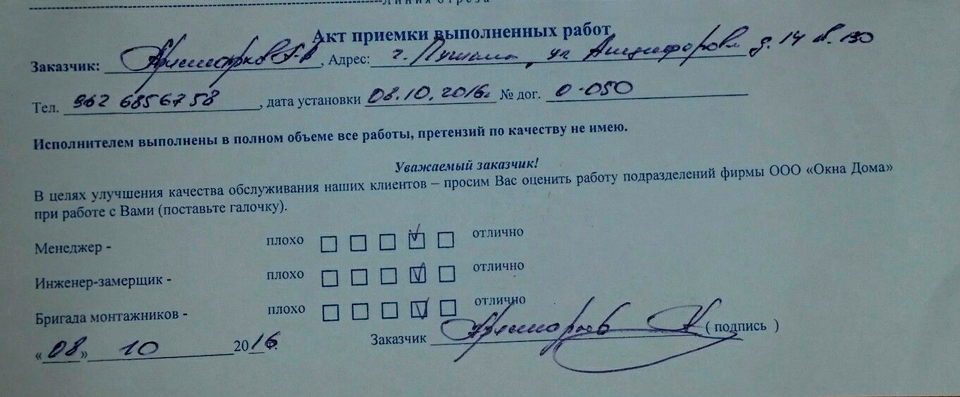 Линия отреза
Акт приемки выполненных работ
Заказчик: , Адрес: г. ул д. 14 кв. 130
Тел. 962 6856758, дата установки 08.10.2016г № дог. 0-050
Исполнителем выполнены в полном объеме все работы, претензий по качеству не имею.
Уважаемый заказчик!
В целях улучшения качества обслуживания наших клиентов – просим Вас оценить работу подразделений фирмы ООО «Окна Дома»
при работе с Вами (поставьте галочку).
Менеджер - плохо отлично
Инженер-замерщик - плохо отлично
Бригада монтажников - плохо отлично
«08» 10 2016г. Заказчик ( подпись )